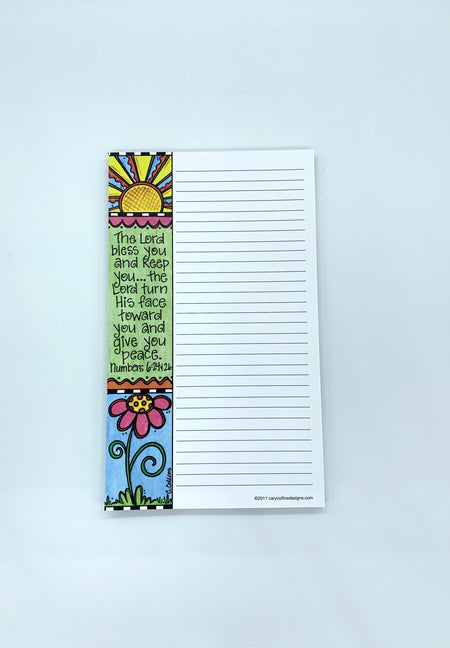 The Lord
bless you
and Keep
you...the
Lord turn
His face
toward
you and
give you
peace.
Numbers 6:24&26
C. Collins
©2011 carycollinsdesigns.com